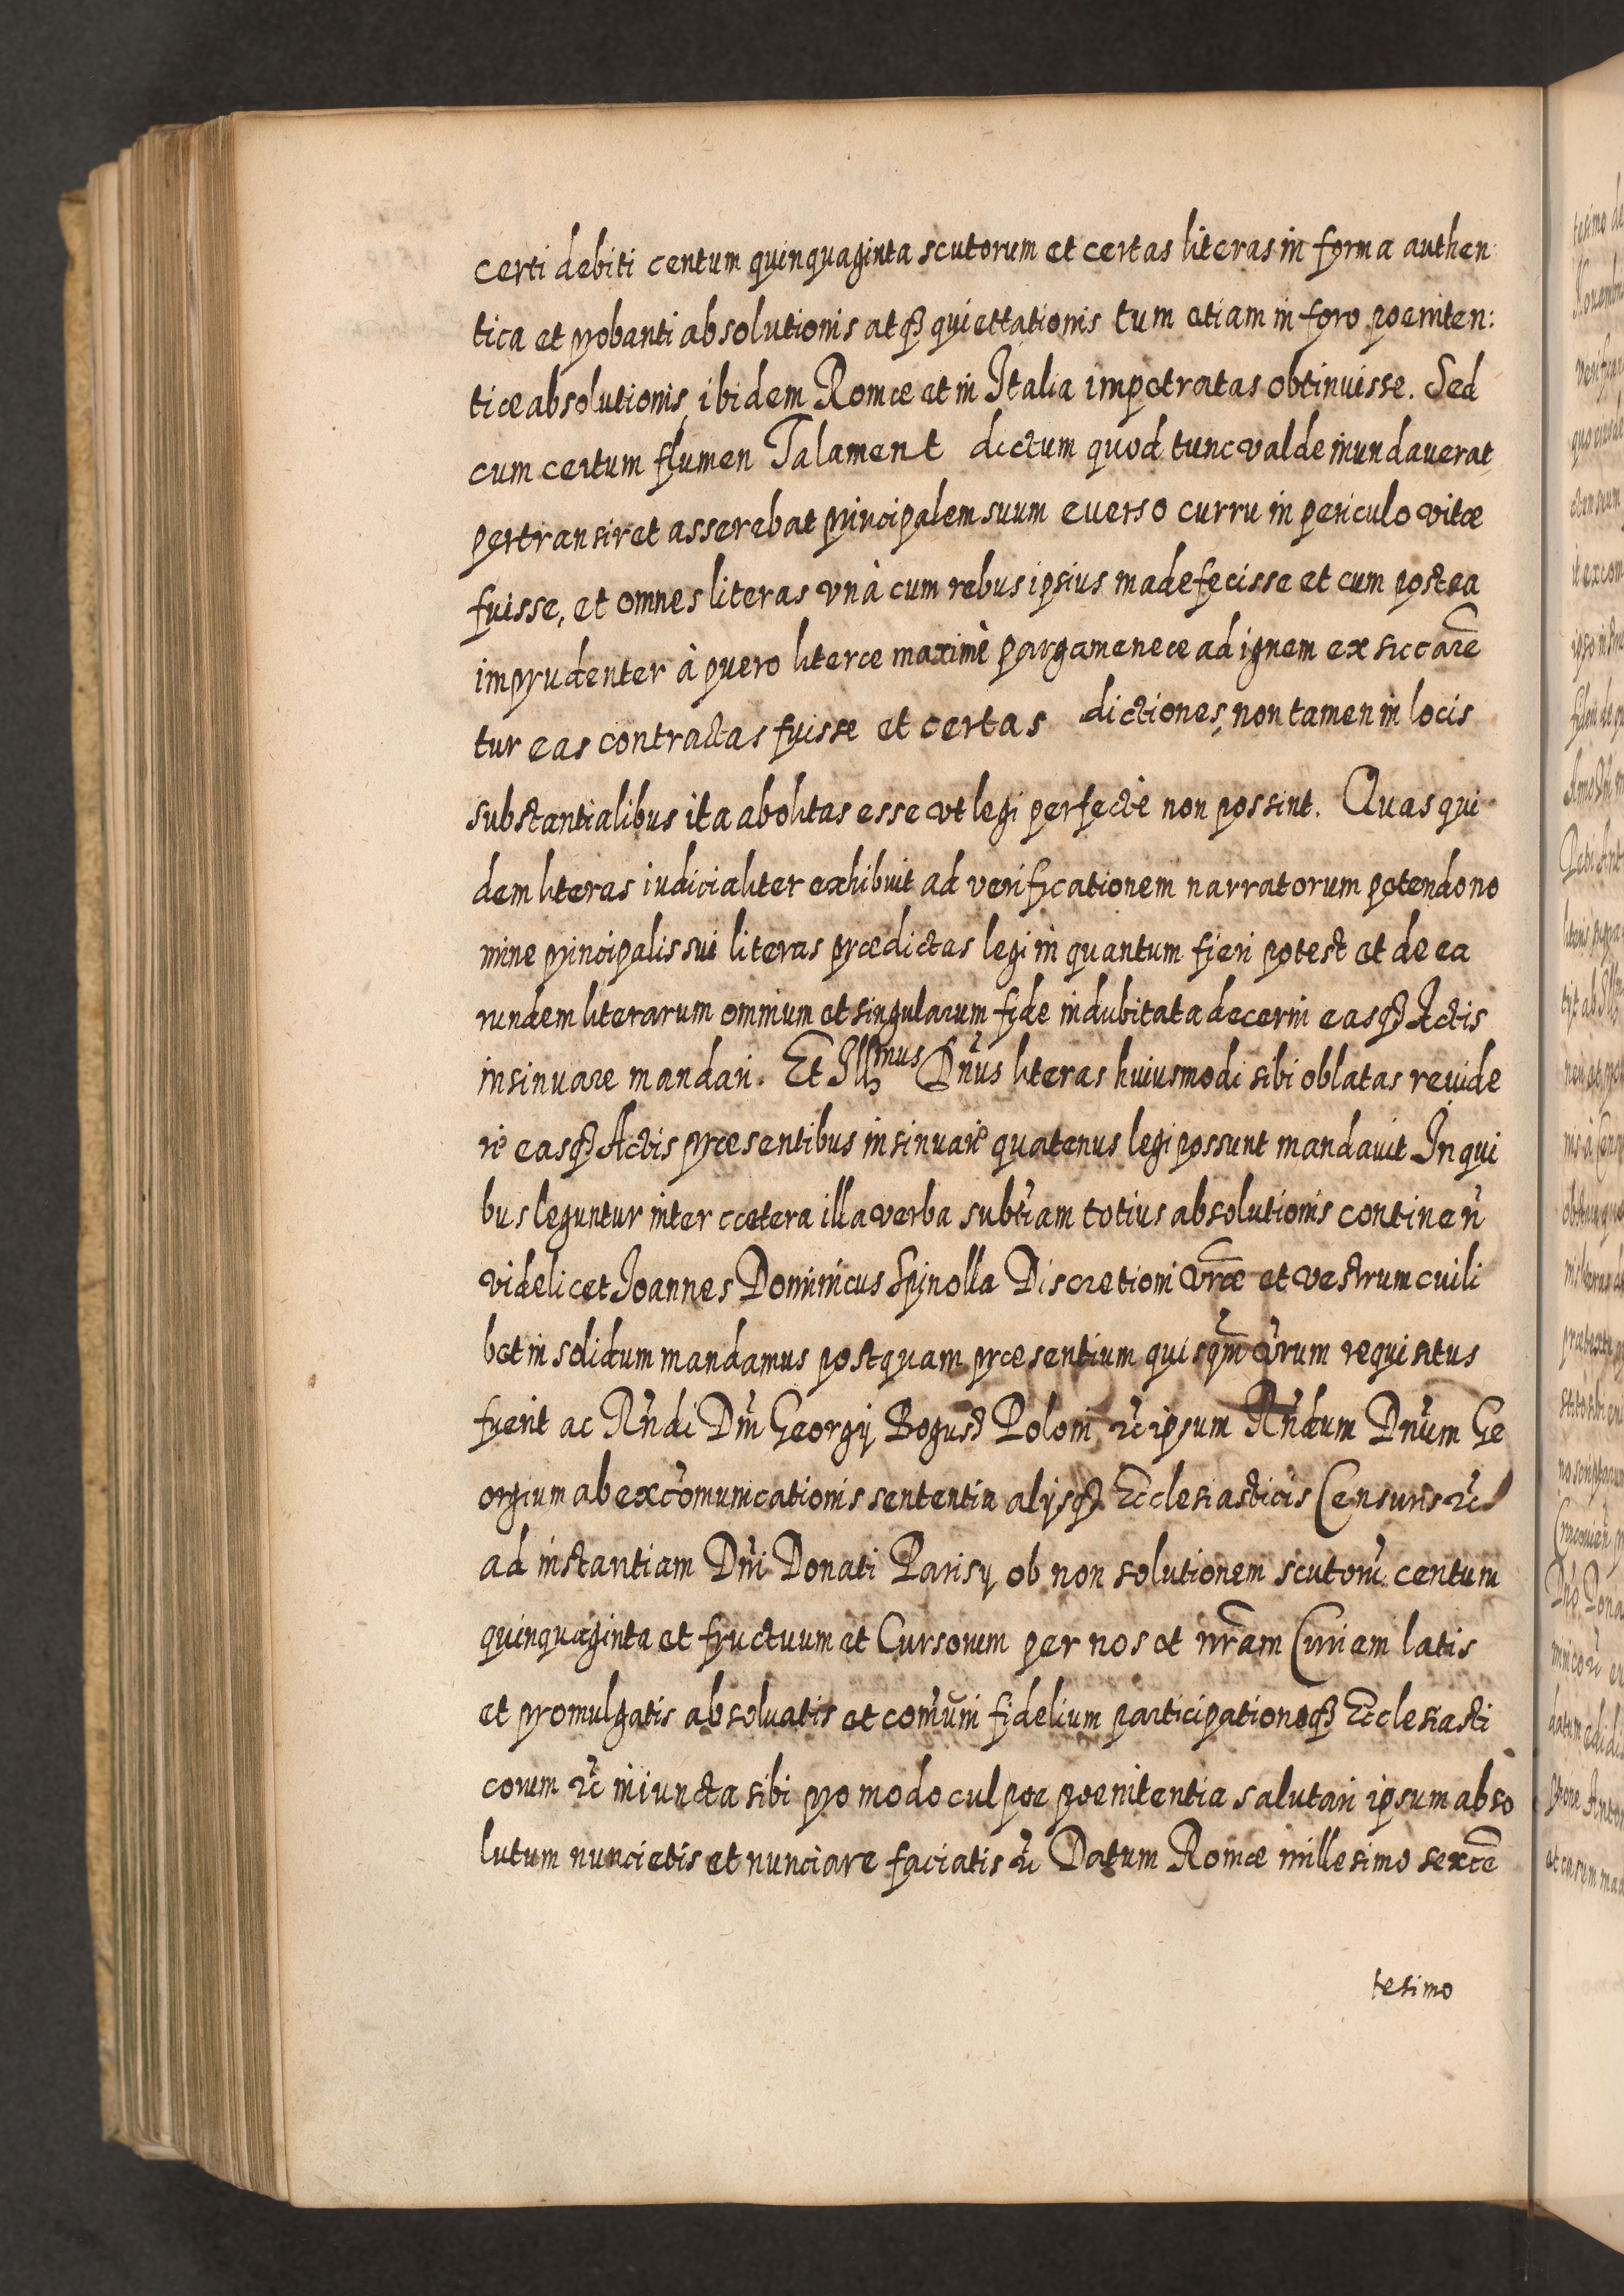 certi debiti centum quinquaginta scutorum et certas literas in forma authen
tica et probanti absolutionis atq₃ quiettationis tum etiam in foro poeniten:
tiæ absolutionis, ibidem Romæ et in Italia impetratas obtinuisse. Sed
cum certum flumen Talament dictum quod tunc valde inundauerat
pertransiret asserebat principalem suum euerso curru in periculo vitæ
fuisse, et omnes literas vnà cum rebus ipsius madefecisse et cum postea
imprudenter à puero literæ maximè pargameneæ ad ignem exsiccare͂
tur eas contractas fuisse et certas dictiones, non tamen in locis
substantialibus ita abolitas esse vt legi perfectè non possint. Quas qui
dem literas iudicialiter exhibuit ad verificationem narratorum petendo no
mine principalis sui literas prædictas legi in quantum fieri potest et de ea
rundem literarum omnium et singularum fide indubitata decerni easq₃ Actis
insinuare mandari. Et Ill͂mus Dn͂us literas huiusmodi sibi oblatas reuide
ri easq₃ Actis præsentibus insinuari quatenus legi possunt mandauit In qui
bus leguntur inter cætera illa verba subt͂iam totius absolutionis continen͂
videlicet Joannes Dominicus Spinolla Discretioni vr͂æ et vestrum cuili
bet in solidum mandamus postquam præsentium quisqm͂ vr͂um requisitus
fuerit ac Rn͂di Dn͂i Georgij Bogusz Poloni, &c ipsum Rn͂dum Dn͂um Ge
orgium ab excom͂unicationis sententia alijsq₃ Ecclesiasticis Censuris &c
ad instantiam Dn͂i Donati Parisij ob non solutionem scutoru͂ centum
quinquaginta et fructuum et Cursorum per nos et nr͂am Curiam latis
et promulgatis absoluatis et com͂uni fidelium participationeq₃ Ecclesiasti
corum &c iniuncta sibi pro modo culpæ poenitentia salutari ipsum abso
lutum nuncietis et nunciare faciatis &c Datum Romæ millesimo sexce͂
tesimo